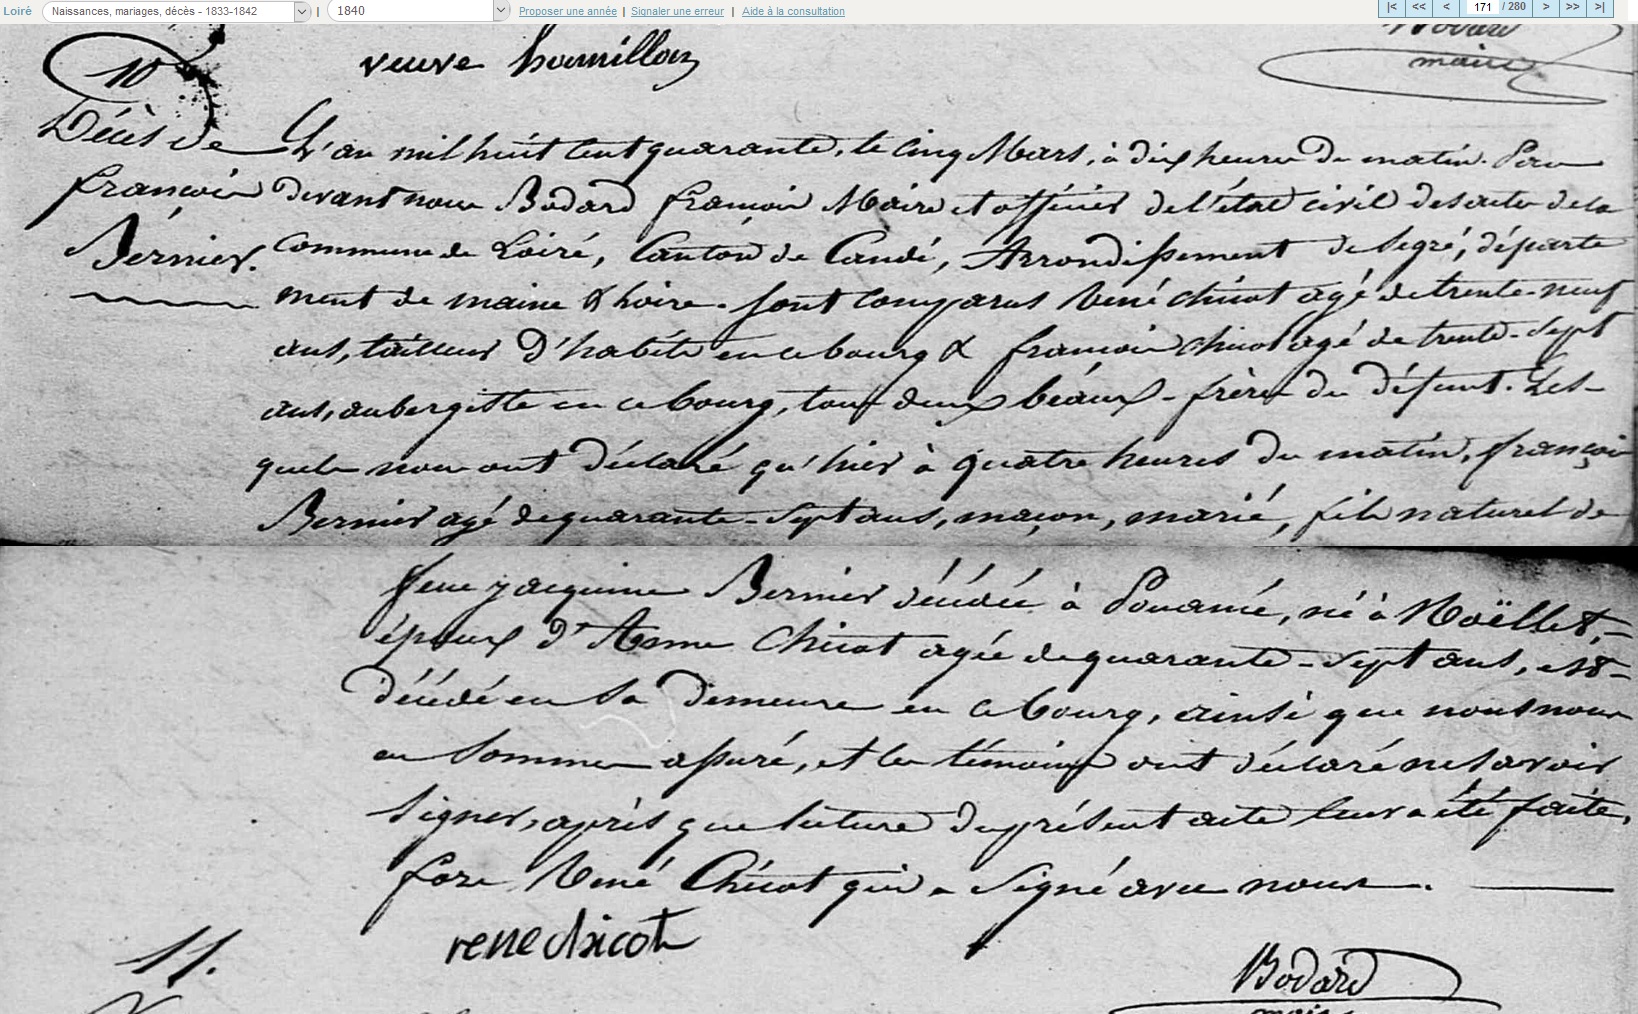 Loiré Naissances, mariages, décès - 1833-1842 | 1840 Proposer une année | Signaler une erreur | Aide à la consultation |< << < 171 / 280 > >> >|
Bodard
maire
veuve
10
Décès de
françois
Bernier.
L'an mil huit cent quarante, le cinq Mars, à dix heures du matin. Par
devant nous Bodard françois Maire et officier de l'état civil des actes de la
Commune de Loiré, Canton de Candé, Arrondissement de Segré, départe
ment de maine & Loire. Sont comparus René chicot agé de trente-neuf
ans, tailleur d'habits en ce bourg & françois chicot agé de trente-sept
ans, aubergiste en ce bourg, tous deux beaux-frères du défunt. Les-
quels nous ont déclaré qu'hier à quatre heures du matin, françois
Bernier agé de quarante-sept ans, maçon, marié, fils naturel de
feue jacquine Bernier décédée à Pouancé, né à Noëllet,
époux d'Anne Chicot agée de quarante-sept ans, est
décédé en sa demeure en ce bourg, ainsi que nous nous
en sommes assuré, et les témoins ont déclaré ne savoir
signer, après que lecture du présent acte leur a été faite,
fors René Chicot qui a signé avec nous.
rene chicot
11.
Bodard
maire